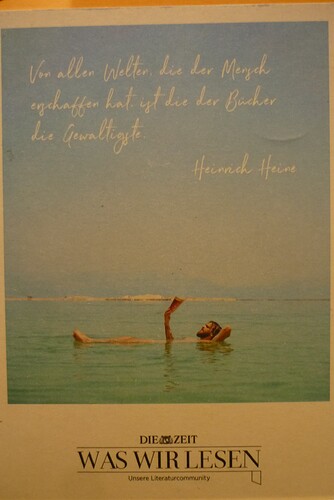 Von allen Welten, die der Mensch
erschaffen hat, ist die der Bücher
die Gewaltigste.
Heinrich Heine
DIE ZEIT
WAS WIR LESEN
Unsere Literaturcommunity